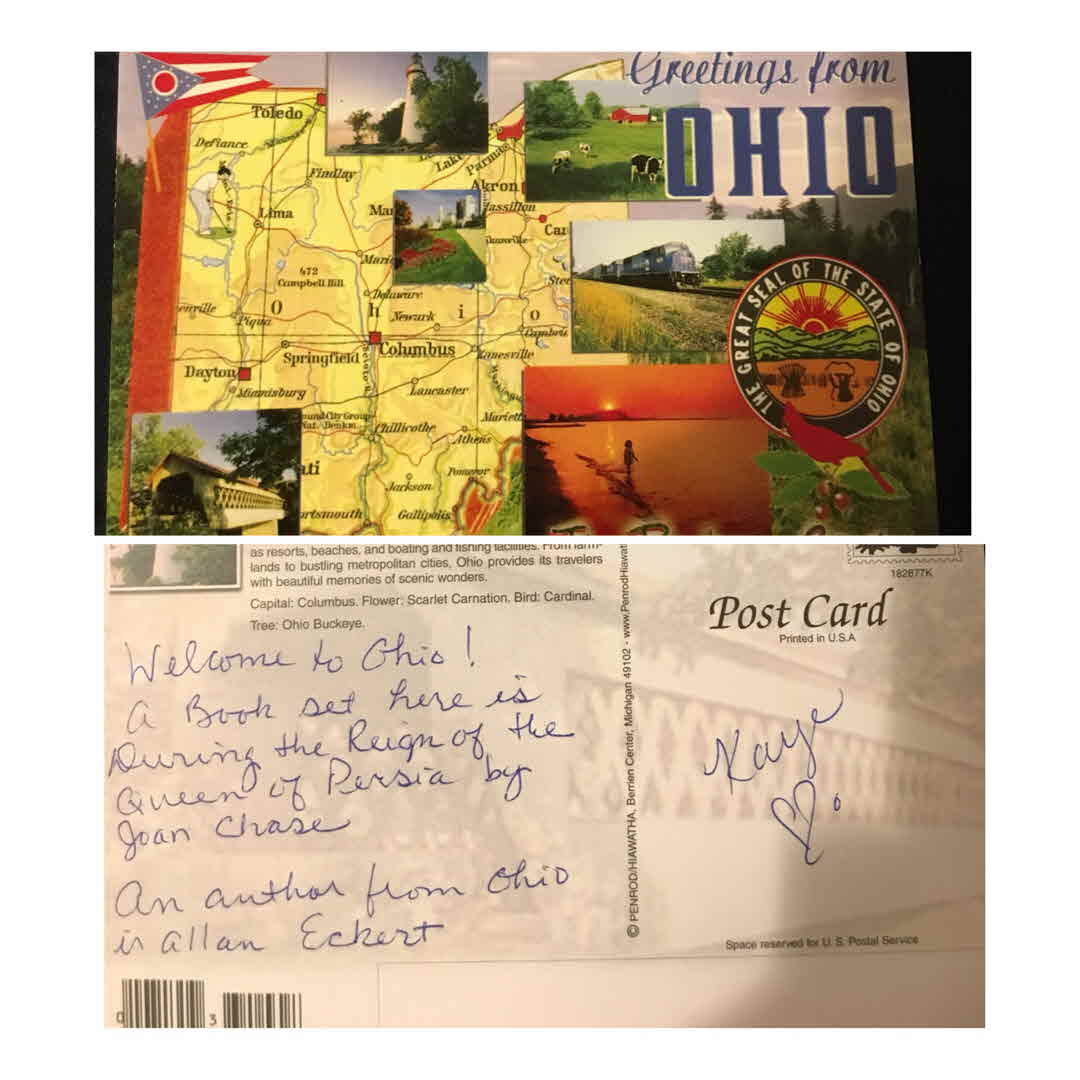 Greetings from
OHIO
Toledo
Defiance
Findlay
Lake
Parma
Akron
Massillon
Lima
472
Campbell Hill
Delaware
Newark
O h i o
Piqua
Springfield
Columbus
Zanesville
Dayton
Miamisburg
Lancaster
Chillicothe
Athens
Pomeroy
Jackson
Gallipolis
THE GREAT SEAL OF THE STATE OF OHIO
as resorts, beaches, and boating and fishing facilities. From farm-
lands to bustling metropolitan cities, Ohio provides its travelers
with beautiful memories of scenic wonders.
Capital: Columbus. Flower: Scarlet Carnation. Bird: Cardinal.
Tree: Ohio Buckeye.
Welcome to Ohio!
A Book set here is
During the Reign of the
Queen of Persia by
Joan Chase
An author from Ohio
is Allan Eckert
0 3
© PENROD/HIAWATHA, Berrien Center, Michigan 49102 - www.PenrodHiawat
182877K
Post Card
Printed in U.S.A
Kaye
Space reserved for U. S. Postal Service